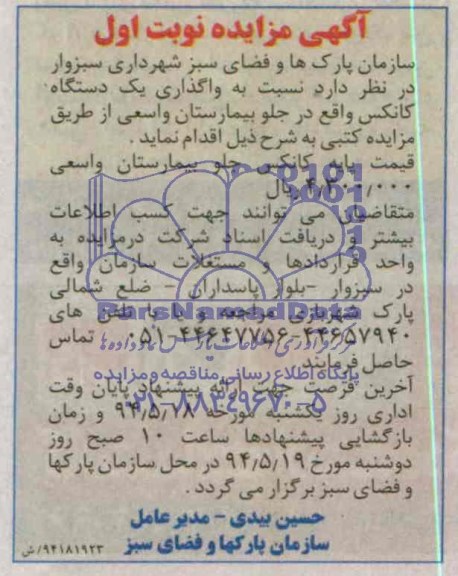 آگهی مزایده نوبت اول
سازمان پارک ها و فضای سبز شهرداری سبزوار
در نظر دارد نسبت به واگذاری یک دستگاه
کانکس واقع در جلو بیمارستان واسعی از طریق
مزایده کتبی به شرح ذیل اقدام نماید .
قیمت پایه کانکس جلو بیمارستان واسعی
۴٫۳۰۰٫۰۰۰ ریال
متقاضیان می توانند جهت کسب اطلاعات
بیشتر و دریافت اسناد شرکت درمزایده به
واحد قراردادها و مستغلات سازمان واقع
در سبزوار -بلوار پاسداران - ضلع شمالی
پارک شهربازی مراجعه و یا با تلفن های
۴۴۶۵۷۹۴۰-۴۴۶۴۷۷۵۶-۰۵۱ تماس
حاصل فرمایند.
آخرین فرصت جهت ارائه پیشنهاد پایان وقت
اداری روز یکشنبه مورخه ۹۴٫۵٫۱۸ و زمان
بازگشایی پیشنهادها ساعت ۱۰ صبح روز
دوشنبه مورخ ۹۴٫۵٫۱۹ در محل سازمان پارکها
و فضای سبز برگزار می گردد .
حسین بیدی - مدیر عامل
سازمان پارکها و فضای سبز
۹۴۱۸۱۹۲۳/ش
ParsNamadData
پایگاه اطلاع رسانی مناقصه و مزایده
۰۲۱-۸۸۳۴۹۶۷۰-۵